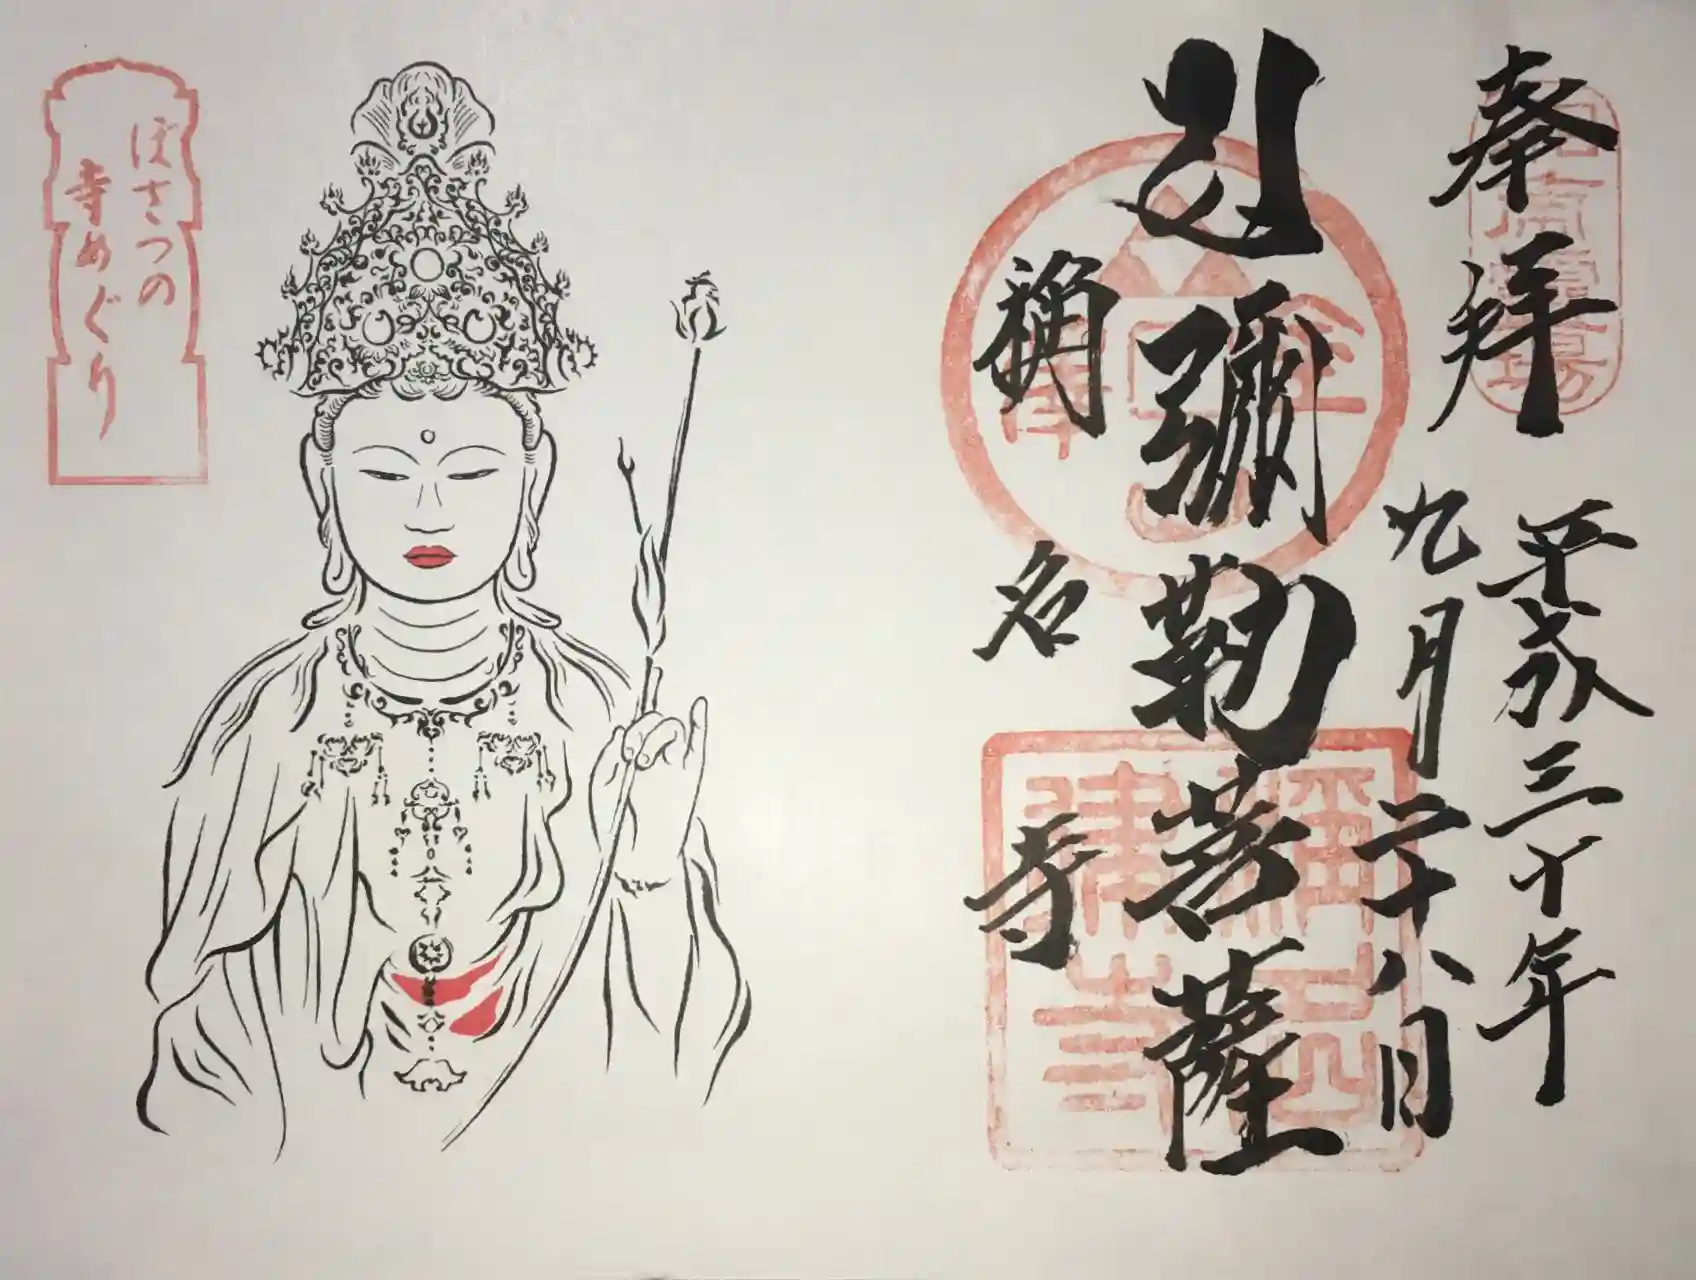 奉拝
平成三十年
九月二十八日
彌勒菩薩
稱名寺
ぼさつの
寺めぐり